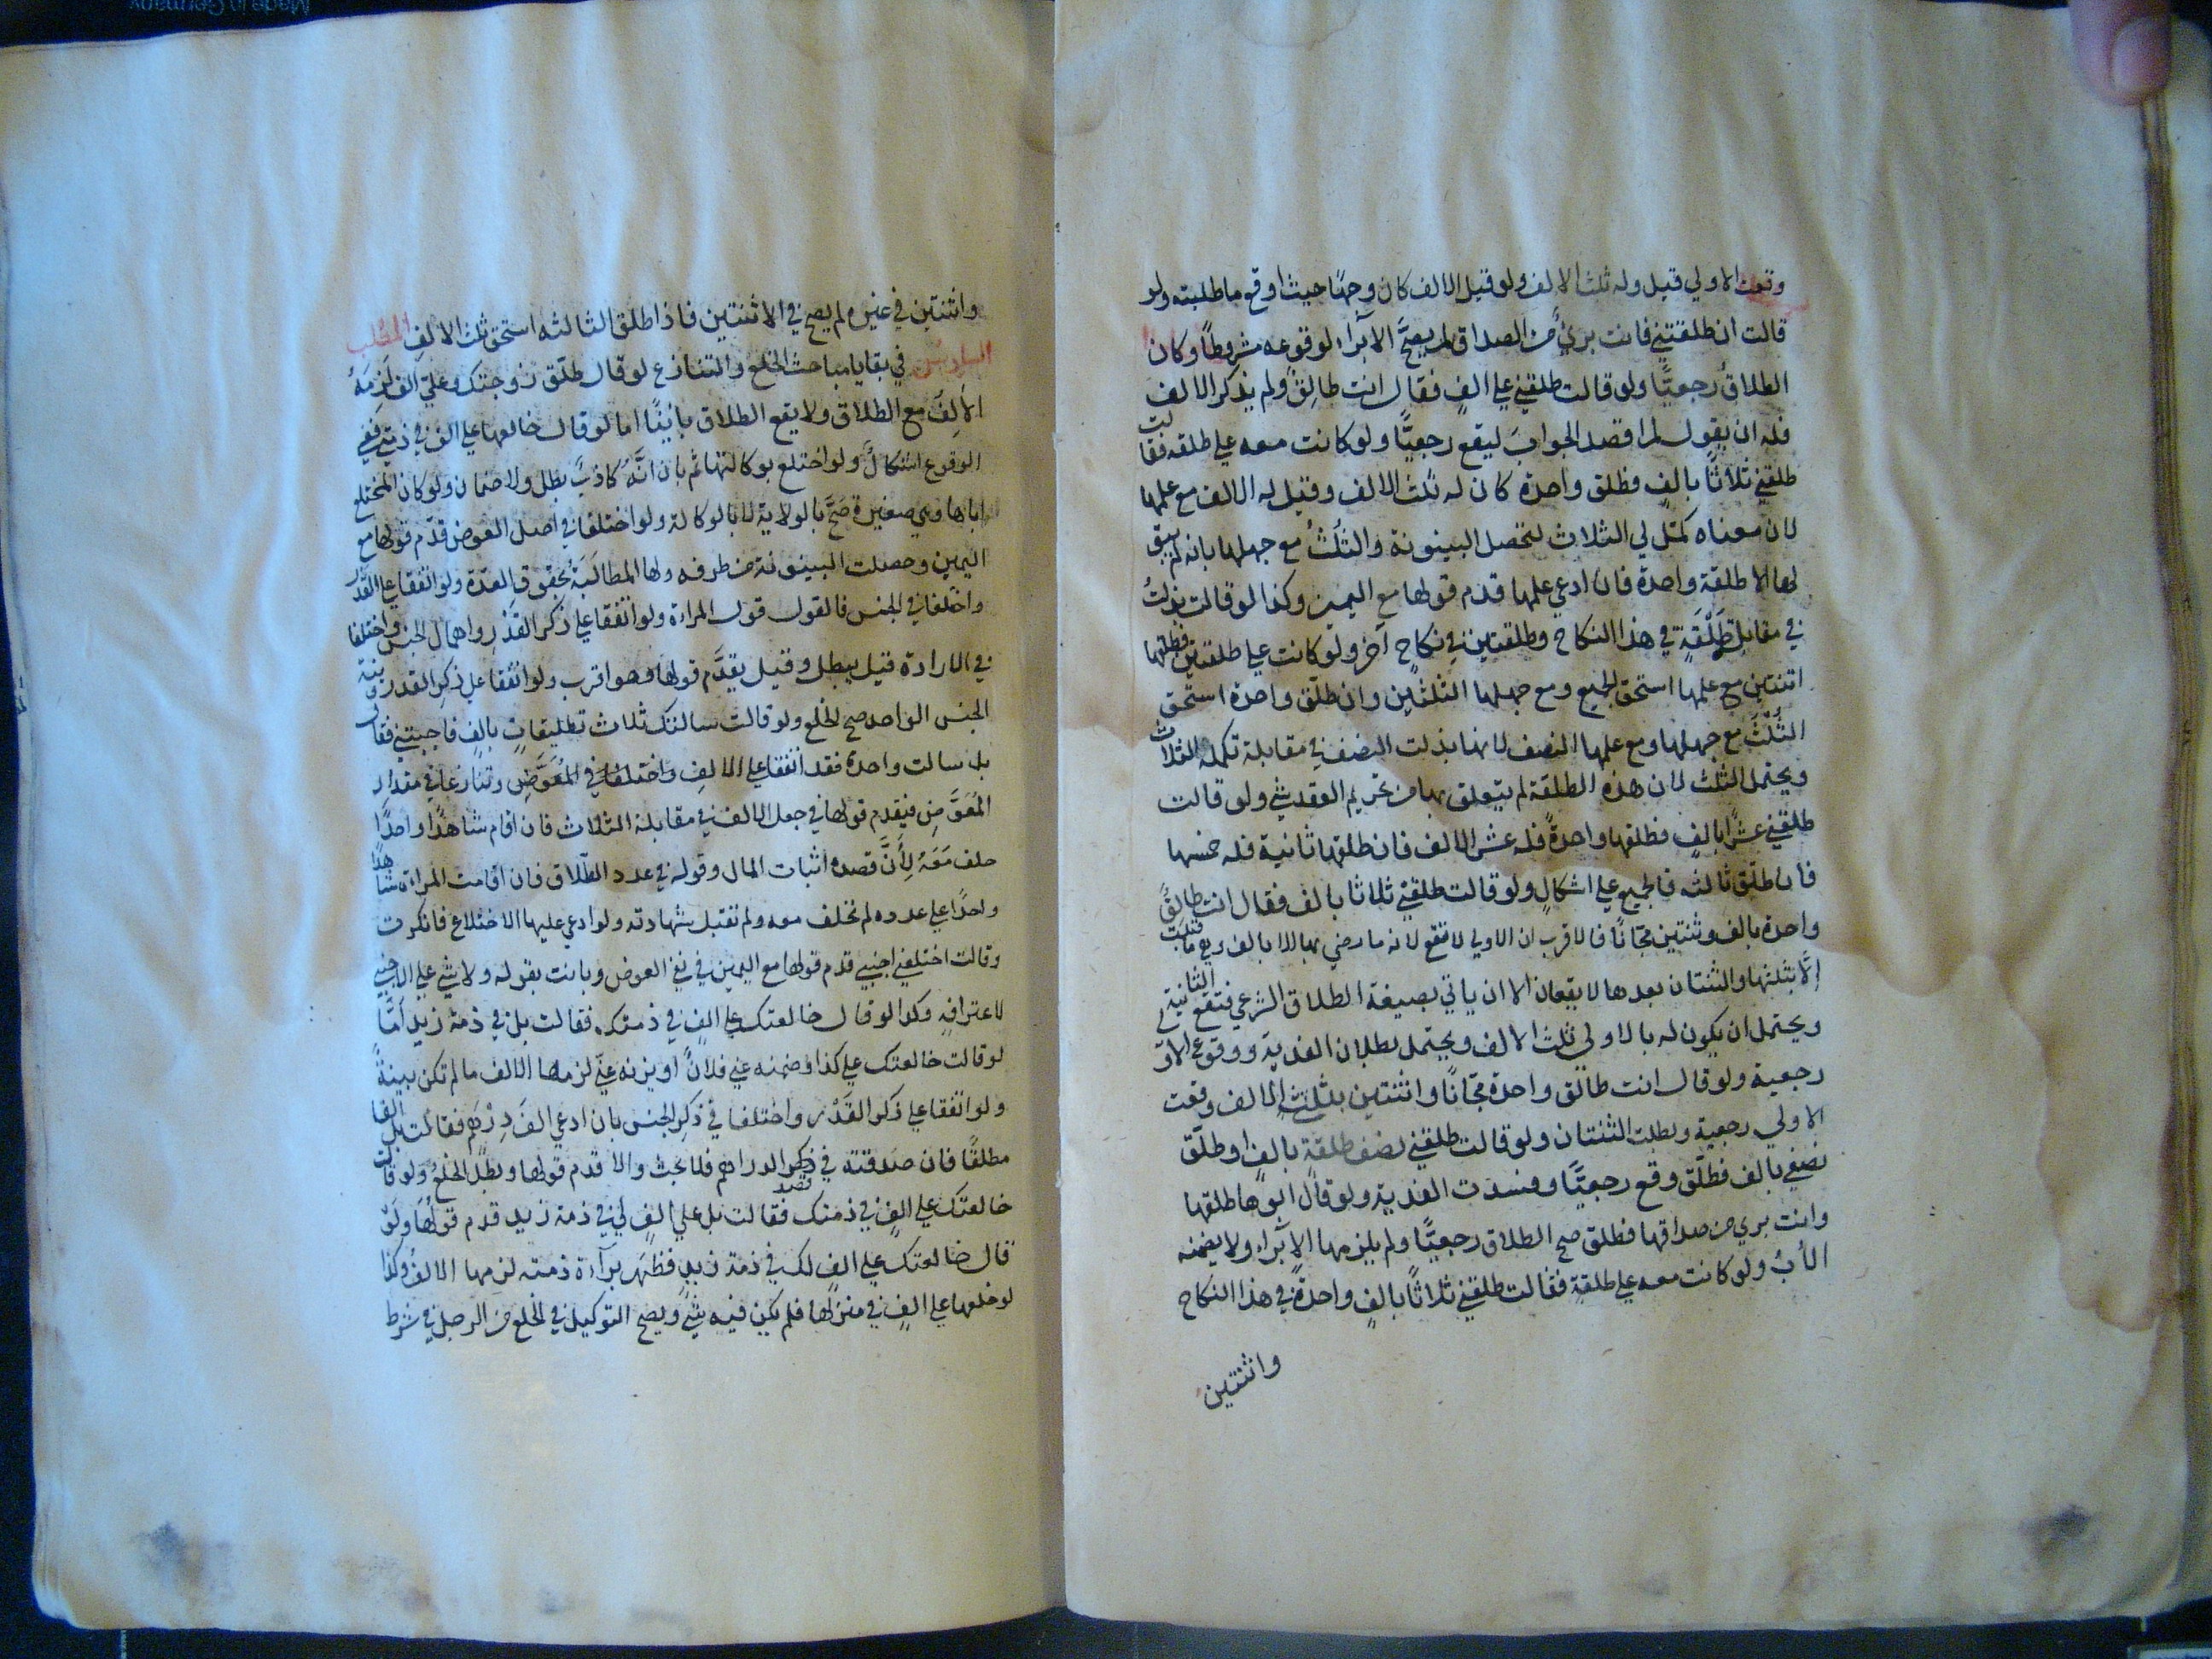 وقعت الاولي قيل وله ثلث الالف ولو قيل الالف كان وجهًا حيث اوقع ما طلبته ولو
قالت ان طلقتني فانت بريٌ من الصداق لم يصحَّ الابراء لوقوعه مشروطًا وكان
الطلاقُ رجعيًّا ولو قالت طلقني علي الفٍ فقال انت طالقٌ ولم يذكر الالف
فله ان يقول لم اقصد الجوابَ ليقع رجعيًّا ولو كانت معه علي طلقه فقالت
طلقني ثلاثًا بالفٍ فطلق واحدة كان له ثلث الالف وقيل له الالف مع علمها
لان معناه كمّل لي الثلاث لتحصل البينونة والثلثُ مع جهلها بانه لم يبق
لها الا طلقة واحدة فان ادعي علمها قدم قولها مع اليمين وكذا لو قالت بذلتُ
في مقابلة طَلْقَةٍ في هذا النكاح وطلقتين في نكاحٍ آخر ولو كانت علي طلقتين فطلقها
اثنتين مع علمها استحق الجميع ومع جهلها الثلثين وان طلّق واحدة استحق
الثُلُثَ مع جهلها ومع علمها النصف لانها بذلت النصف في مقابلة تكملة الثلاث
ويحتمل الثلث لان هذه الطلقة لم يتعلق بها من تحريم العقد شيٌ ولو قالت
طلقني عشرًا بالفٍ فطلقها واحدةً فله عشر الالف فان طلقها ثانية فله خمسها
فان طلّق ثالثه فالجميع علي اشكالٍ ولو قالت طلقنْي ثلاثا بالف فقال انت طالقٌ
واحدة بالف وثنتين مجّانًا فالاقرب ان الاولي لا تقع لانه ما رضي بها الا بالف وهي ما قبلت
اِلَّا بثلثها والثنتان بعدها لا يقعان الا ان ياتي بصيغة الطلاق الشرعي فتقع الثانية
ويحتمل ان يكون له بالاولي ثلث الالف ويحتمل بطلان الفدية ووقوع الاولي
رجعية ولو قال انت طالق واحدة مجّانًا واثنتين بثلثي الالف وقعت
الاولي رجعية وبطلت الثنتان ولو قالت طلقني نصف طلقةٍ بالفٍ او طلّق
نصفي بالف فطلّق وقع رجعيًّا وفسدت الفدية ولو قال ابوها طلقها
وانت بري من صداقها فطلق صح الطلاق رجعيًّا ولم يلزمها الابراء ولا يضمنه
الأبُ ولو كانت معه علي طلقةٍ فقالت طلقني ثلاثًا بالفٍ واحدةً في هذا النكاح
واثنتين
واثنتين في غيره لم يصح في الاثنتين فاذا طلق الثالثه استحق ثلث الالف المطلب
السادس في بقايا مباحث الخلع والتنازع لو قال طلّق زوجتك وعليّ الف لَزِمَهُ
الألِفَ مع الطلاق ولا يقع الطلاق باينًا اما لو قال خالعها علي الف في ذمتي ففي
الوقوع اشكالٌ ولو اختلع بوكالتها ثم بان انَّهُ كاذبٌ بطل ولا ضمان ولو كان المختلع
اباها وهي صغيرة صحَّ بالولاية لا بالوكالة ولو اختلفا في اصل العوض قدّم قولها مع
اليمين وحصلت البينونة من طرفه ولها المطالَبَةُ بحقوق العدّة ولو اتفقا علي القَدْر
واختلفا في الجنس فالقول قول المراءة ولو اتّفقا علي ذكر القَدْرِ واهمال الجنس واختلفا
في الارادة قيل يبطل وقيل يقدَّم قولها وهو اقرب ولو اتفقا علي ذكر القدر ونية
الجنس الواحد صح الخلع ولو قالت سالتك ثلاث تطليقاتٍ بالفٍ فاجبتني فقال
بل سالت واحدة فقد اتفقا علي الالفِ واختلفا في المُعَوَّضِ وتنازعا في مقدار
المُعَوَّضِ فيقدم قولها في جعل الالف في مقابلة الثلاث فان اقام شاهدًا واحدًا
حلف مَعَهُ لِأَنَّ قصده اثبات المال وقوله في عدد الطّلاق فان اقامت المراءة شاهدًا
واحدًا علي عدده لم تحلف معه ولم تقبل شهادته ولو ادعي عليها الاختلاع فانكرت
وقالت اختلعني اجنبي قدم قولها مع اليمين في نفي العوض وبانت بقوله ولا شي علي الاجنبي
لاعترافهِ وكذا لو قال خالعتك علي الفٍ في ذمتك فقالت بل في ذمة زيد أمَّا
لو قالت خالعتك علي كذا وضمنه عني فلانٌ او يزنه عنّي لزمها الالف ما لم تكن بينةٌ
ولو اتفقا علي ذكر القَدْر واختلفا في ذكر الجنس بان ادعي الفَ دِرْهمٍ فقالت بل الفا
مطلقًا فان صدقته في قصد الدراهم فلا بحث والا قدم قولها وبطَلَ الخلعُ ولو قال
خالعتك علي الفٍ في ذمتك فقالت بل علي الفٍ لي في ذمة زيد قدم قولُها ولَوْ
قال خالعتك علي الفٍ لك في ذمة زيدٍ فظَهَر برآءة ذمته لزمها الالفُ وكذا
لو خلعها علي الفٍ في منزلها فلم يكن فيه شيٌ ويصح التوكيل في الخلع من الرجل في شرط